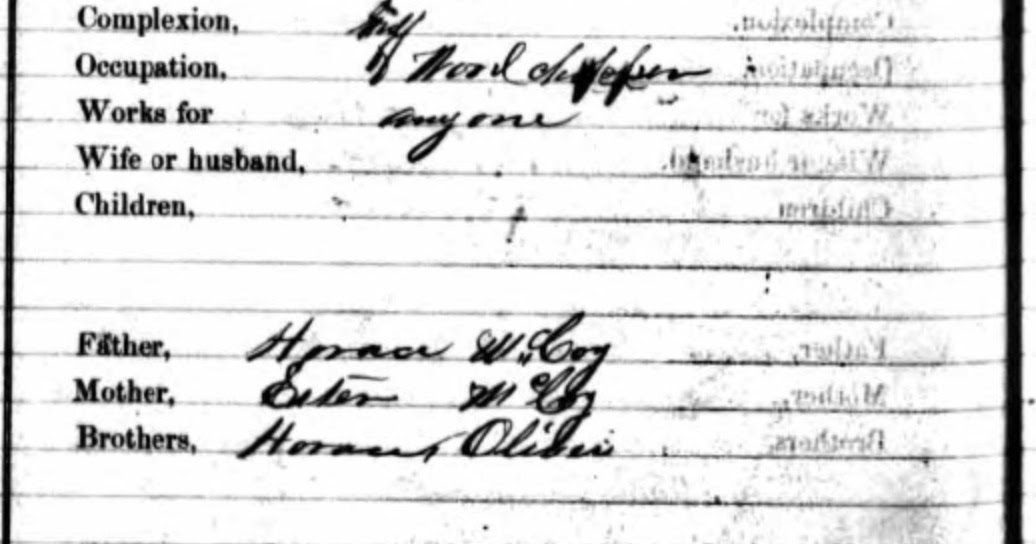 Complexion,
Occupation, Wood chopper
Works for anyone
Wife or husband,
Children,
Father, Horace McCoy
Mother, Ester McCoy
Brothers, Horace, Oliver